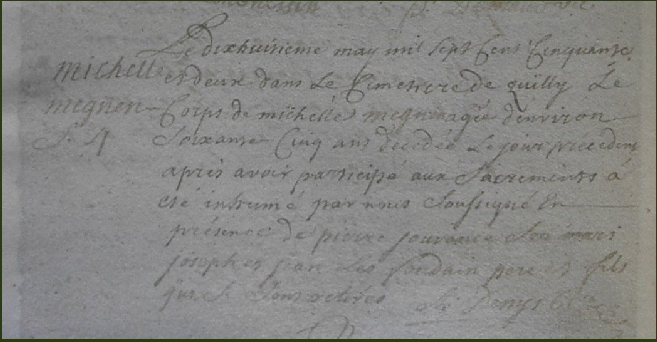 Le dixhuitieme may mil sept Cent Cinquante
michelle
et deux dans Le Cimetiere de quilly Le
megnen
Corps de michelle megnen agée denviron
S. 4
Soixante Cinq ans décédée Le jour precedent
apres avoir participé aux Sacrements á
été inhumé par nous Soussigné En
présence de pierre jourance Son mari
joseph et jean Les pere et fils
qui Se Sont retirés